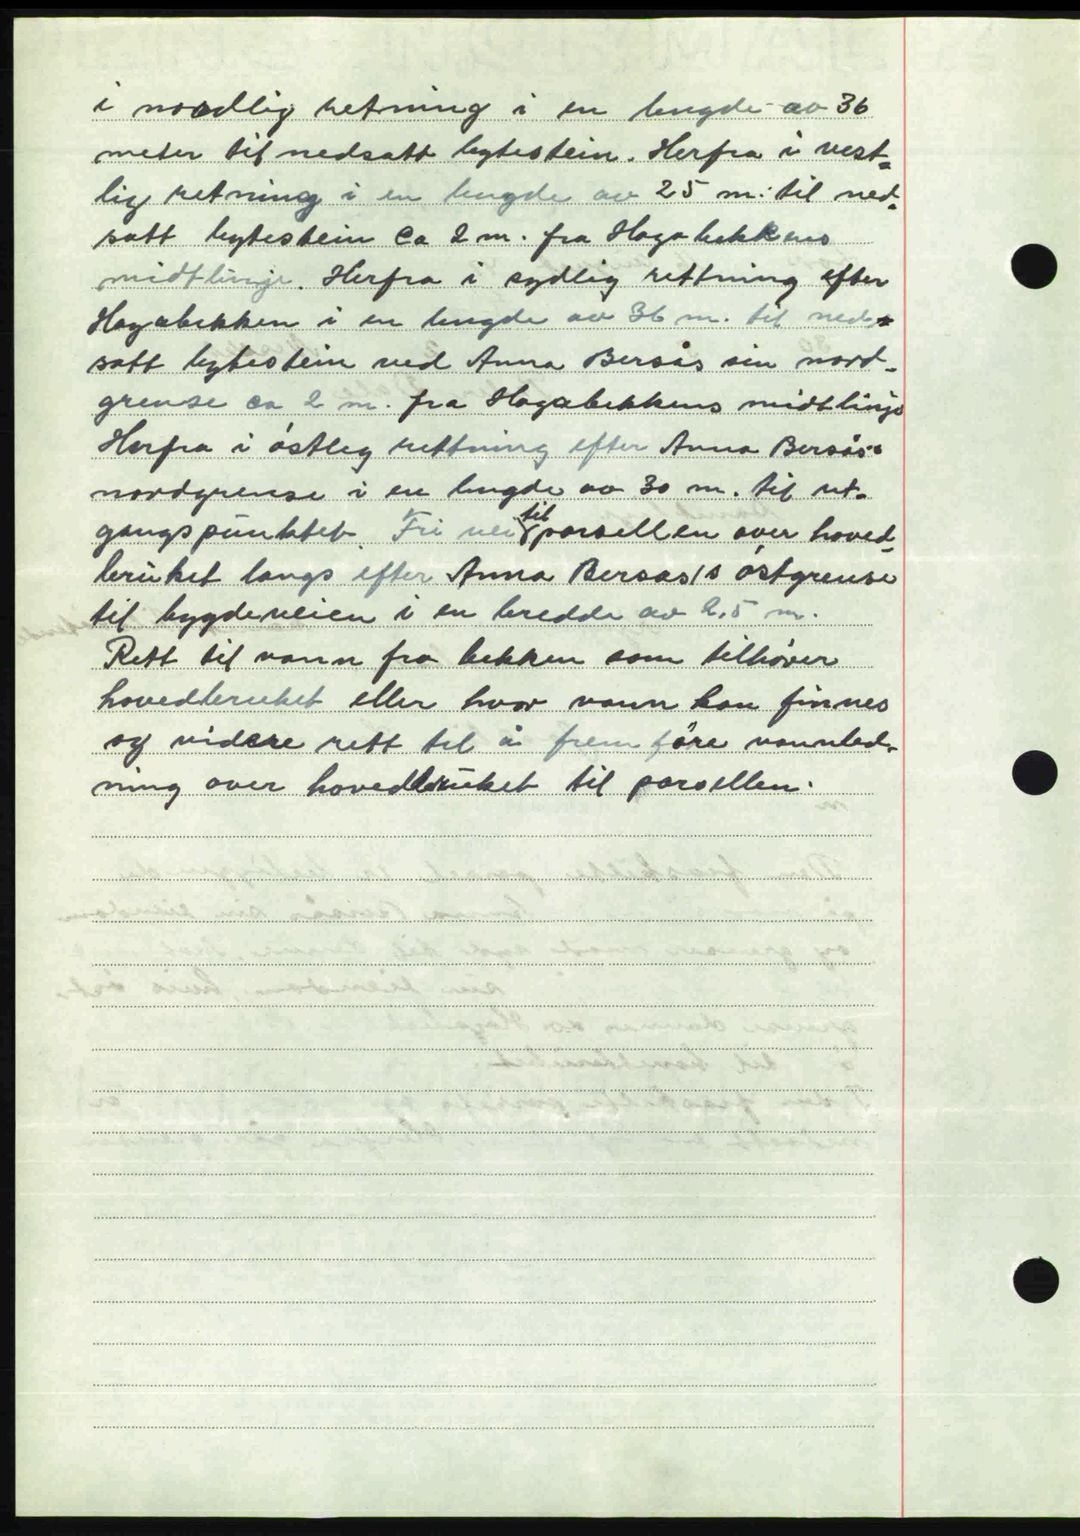 i nordlig retning i en lengde av 36
meter til nedsatt bytestein. Herfra i vest=
lig retning i en lengde av 25 m. til ned=
satt bytestein ca 2 m. fra Hagabekkens
midtlinje. Herfra i sydlig rettning efter
Hagabekken i en lengde av 36 m. til ned=
satt bytestein ved Anna Bersås sin nord-
grense ca 2 m. fra Hagabekkens midtlinje
Herfra i östleg rettning efter Anna Bersås's
nordgrense i en lengde av 30 m. til ut-
gangspunktet. Fri vei til parsellen over hoved-
bruket langs efter Anna Bersås's östgrense
til bygdeveien i en bredde av 2,5 m.
Rett til vann fra bekken som tilhører
hovedbruket eller hvor vann kan finnes
og videre rett til å fremföre vannled-
ning over hovedbruket til parsellen.